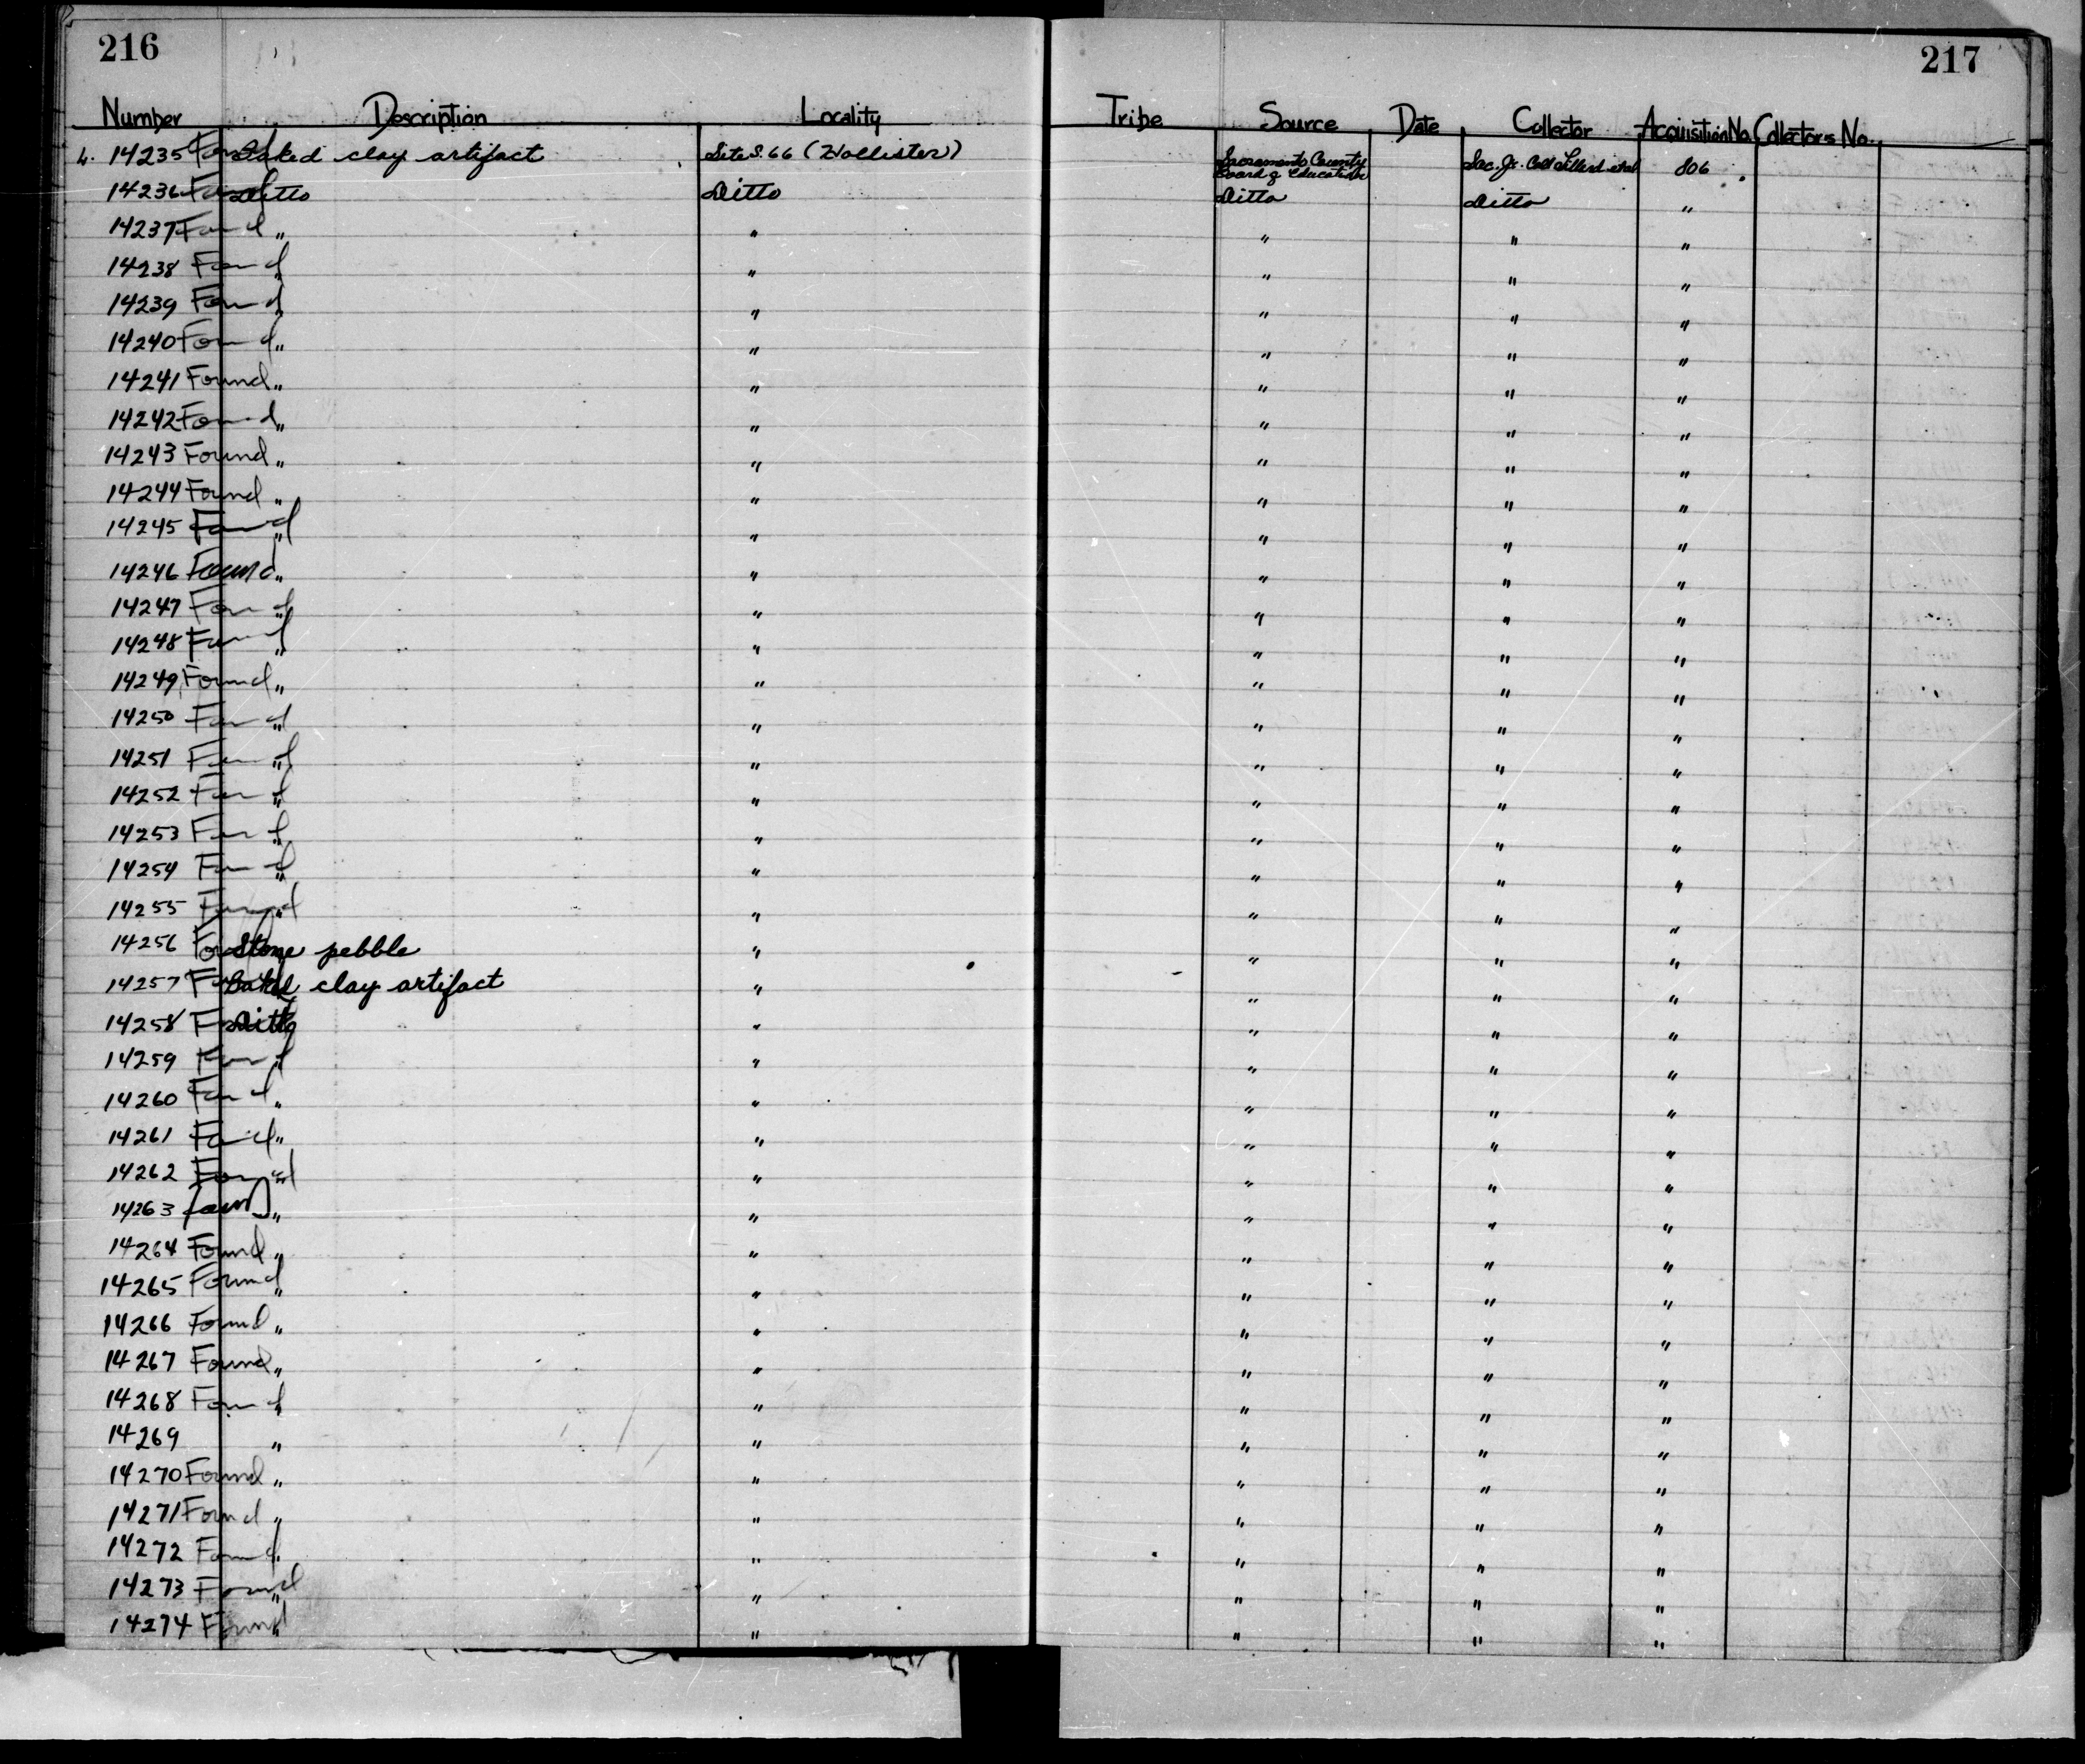 216
217
Number Description Locality Tribe Source Date Collector Acquisition No. Collectors No.
4. 14235 Found Baked clay artifact Site S.66 (Hollister) Sacramento County Board of Education Sac. Jr. Coll 806
14236 Found Ditto Ditto Ditto Ditto "
14237 Found " " " " "
14238 Found " " " " "
14239 Found " " " " "
14240 Found " " " " "
14241 Found " " " " "
14242 Found " " " " "
14243 Found " " " " "
14244 Found " " " " "
14245 Found " " " " "
14246 Found " " " " "
14247 Found " " " " "
14248 Found " " " " "
14249 Found " " " " "
14250 Found " " " " "
14251 Found " " " " "
14252 Found " " " " "
14253 Found " " " " "
14254 Found " " " " "
14255 Found " " " " "
14256 Found Stone pebble " " " "
14257 Found Baked clay artifact " " " "
14258 Found Ditto " " " "
14259 Found " " " " "
14260 Found " " " " "
14261 Found " " " " "
14262 Found " " " " "
14263 Found " " " " "
14264 Found " " " " "
14265 Found " " " " "
14266 Found " " " " "
14267 Found " " " " "
14268 Found " " " " "
14269 " " " " "
14270 Found " " " " "
14271 Found " " " " "
14272 Found " " " " "
14273 Found " " " " "
14274 Found " " " " "